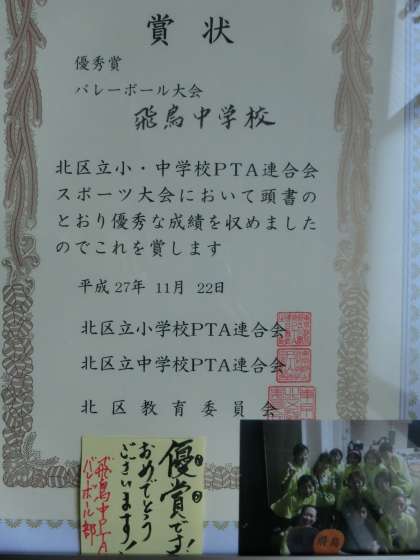 賞状
優秀賞
バレーボール大会
飛鳥中学校
北区立小・中学校PTA連合会
スポーツ大会において頭書の
とおり優秀な成績を収めました
のでこれを賞します
平成27年 11月 22日
北区立小学校PTA連合会
北区立中学校PTA連合会
北区教育委員会
優賞です!
おめでとう
ございます!
飛鳥中PTA
バレーボール部
飛鳥